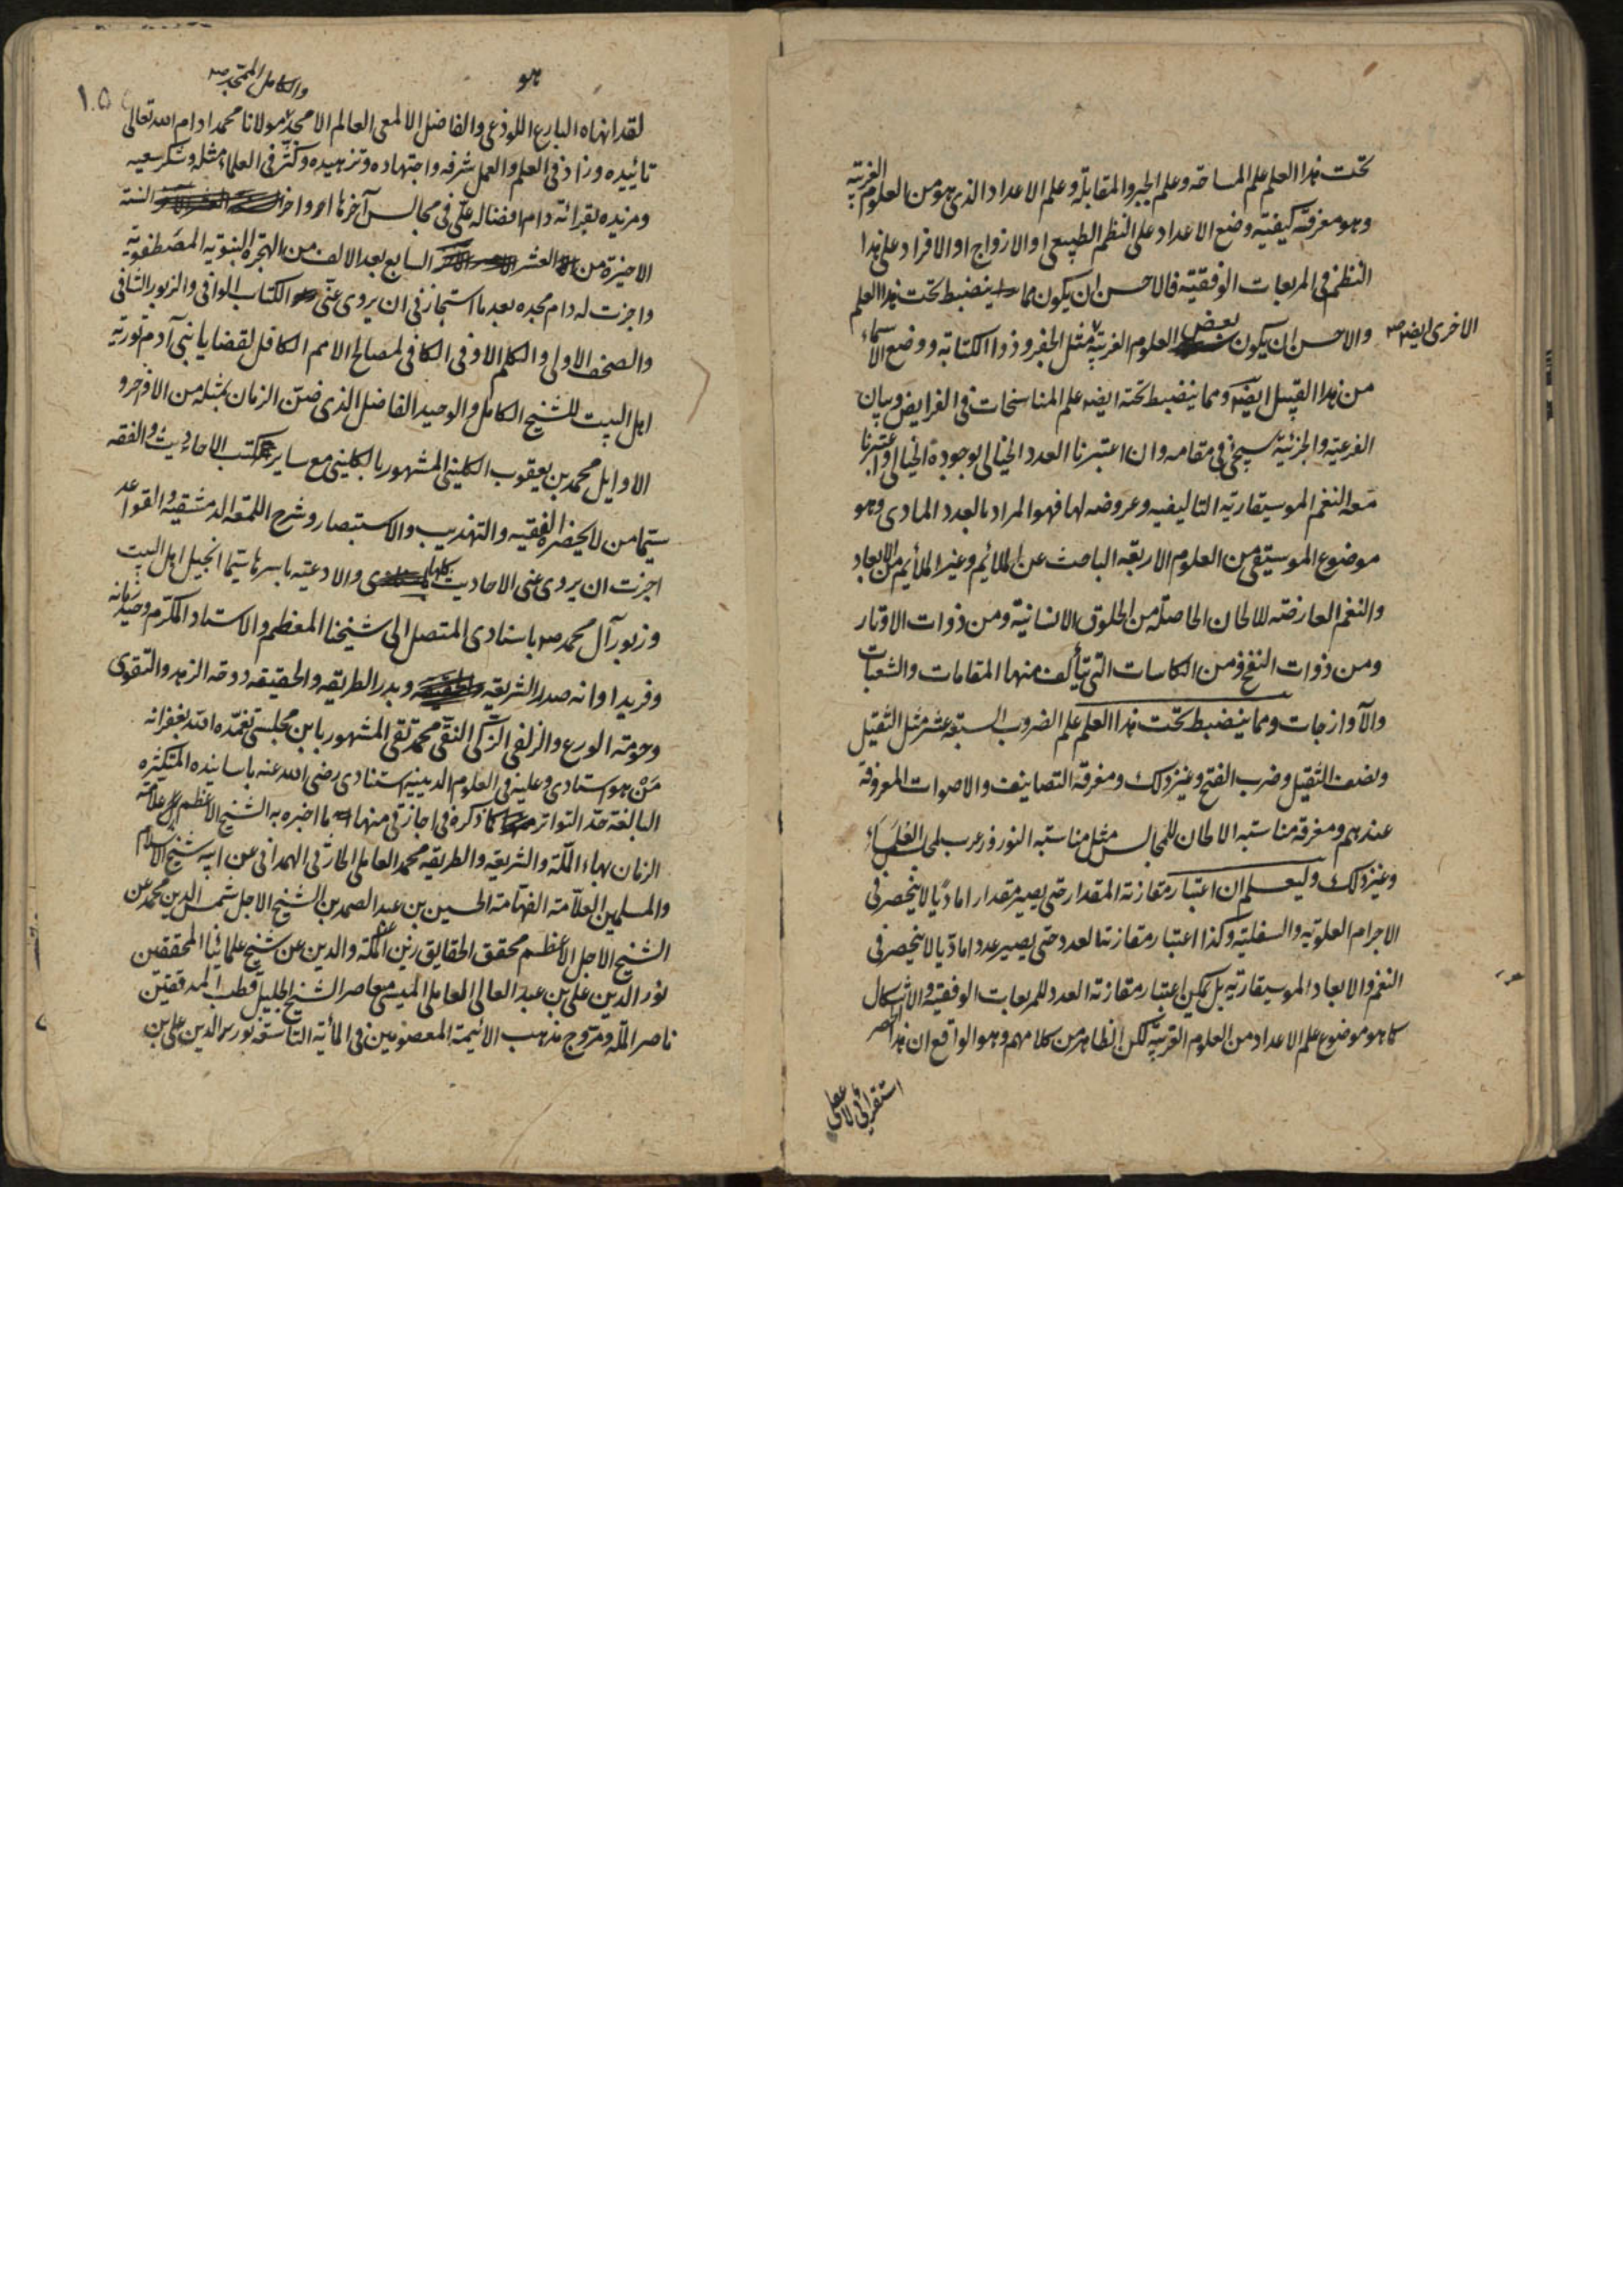 تحت هذا العلم علم المساحة وعلم الجبر والمقابلة وعلم الاعداد الذى هو من العلوم الغريبة
وهو معرفة كيفية وضع الاعداد على النظم الطبيعى او الازواج او الافراد على هذا
النظم فى المربعات الوفقية فالاحسن ان يكون مما ينضبط تحت هذا العلم
والاحسن ان يكون بعض العلوم الغريبة مثل الجفر وذو الكتابة ووضع الاسماء
الاخرى ايضا صح
من هذا القبيل ايضا ومما ينضبط تحته ايضا علم المناسخات فى الفرايض وبيان
الفرعية والجزئية سيجئ فى مقامه وان اعتبرنا العدد الخيالى بوجوده الخيالى واعتبرنا
معه النغم الموسيقارية التاليفيه وعروضه لها فهو المراد بالعدد المادى وهو
موضوع الموسيقى من العلوم الاربعة الباحث عن الملائم وغير الملائم من الابعاد
والنغم العارضة للالحان الحاصلة من الحلوق الانسانية ومن ذوات الاوتار
ومن ذوات النفخ ومن الكاسات التى يتألف منها المقامات والشعبات
والآوازجات ومما ينضبط تحت هذا العلم علم الضروب السبعة عشر مثل الثقيل
ونصف الثقيل وضرب الفتح وغير ذلك ومعرفة التصانيف والاصوات المعروفة
عندهم ومعرفة مناسبة الالحان للمجالس مثل مناسبة النوروز عرب
وغير ذلك وليعلم ان اعتبار مقارنة المقدار حتى يصير مقدارا ماديا لا ينحصر فى
الاجرام العلوية والسفلية وكذا اعتبار مقارنة العدد حتى يصير عددا ماديا لا ينحصر فى
النغم والابعاد الموسيقارية بل يمكن اعتبار مقارنة العدد للمربعات الوفقية والاشكال
كما هو موضوع علم الاعداد من العلوم الغريبة لكن الظاهر من كلامهم وهو الواقع ان هذا الحصر
استقرائى لا عقلى
هو
والكامل الممجد صح
١٠٥
لقد انهاه البارع اللوذعى والفاضل الالمعى العالم الامجد مولانا محمد ادام الله تعالى
تائييده وزاد فى العلم والعمل شرفه واجتهاده وتزهيده وكثر فى العلماء مثله وشكر سعيه
ومزيده بقرائة دام افضاله على فى مجالس آخرها اواخر السنة
الاخيرة من العشر السابع بعد الالف من الهجرة النبوية المصطفوية
واجزت له دام مجده بعد ما استجازنى ان يروى عنى الكتاب الوافى والزبور الشافى
والصحف الاولى والكلم الاوفى الكافى لمصالح الامم الكافل لقضايا بنى آدم تورية
اهل البيت للشيخ الكامل والوحيد الفاضل الذى ضنن الزمان بمثله من الاواخر و
الاوايل محمد بن يعقوب الكلينى المشهور بالكلينى مع ساير كتب الاحاديث والفقه
سيما من لا يحضره الفقيه والتهذيب والاستبصار وشرح اللمعة الدمشقية والقواعد
اجزت ان يروى عنى الاحاديث كلها والادعيه باسرها سيما انجيل اهل البيت
وزبور آل محمد ص باسنادى المتصل الى شيخنا المعظم والاستاد المكرم وحيد زمانه
وفريد اوانه صدر الشريعة وبدر الطريقه والحقيقه دوحة الزهد والتقوى
وحومة الورع والزلفى الزكى النقى محمد تقى المشهور بابن مجلسى تغمده الله بغفرانه
من هو استادى وعليه فى العلوم الدينيه استنادى رضى الله عنه باسانيده المتكثره
البالغة حد التواتر كما ذكره فى اجازتى منها ما اخبره به الشيخ الاعظم علامة
الزمان بهاء الملة والشريعة والطريقه محمد العاملى الحارثى الهمدانى عن ابيه شيخ الاسلام
والمسلمين العلامة الفهامة الحسين بن عبد الصمد بن الشيخ الاجل شمس الدين محمد عن
الشيخ الاجل الاعظم محقق الحقايق زين الملة والدين عن شيخ علمائنا المحققين
نور الدين على بن عبد العالى العاملى الميسى معاصر الشيخ الجليل قطب المدققين
ناصر الملة ومروج مذهب الائيمة المعصومين فى المأية التاسعة نور الدين على بن